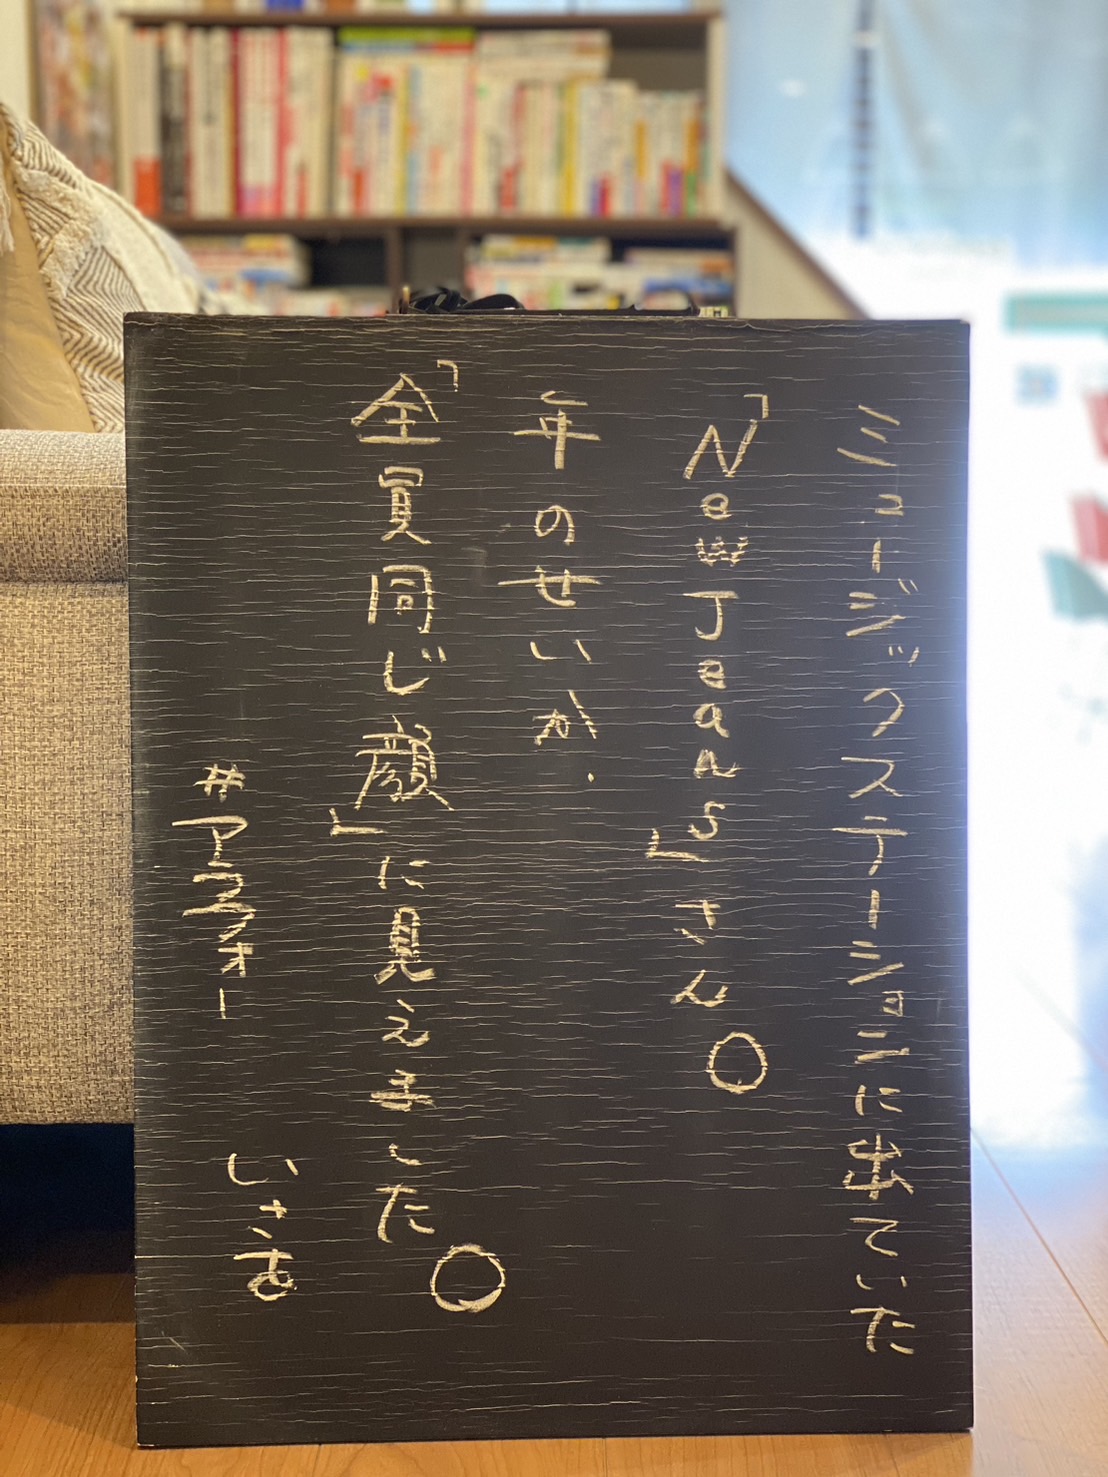 ミュージックステーションに出ていた
「NewJeans」さん。
年のせいか.
「全員同じ顔」に見えました。
#アラフォー
いさお